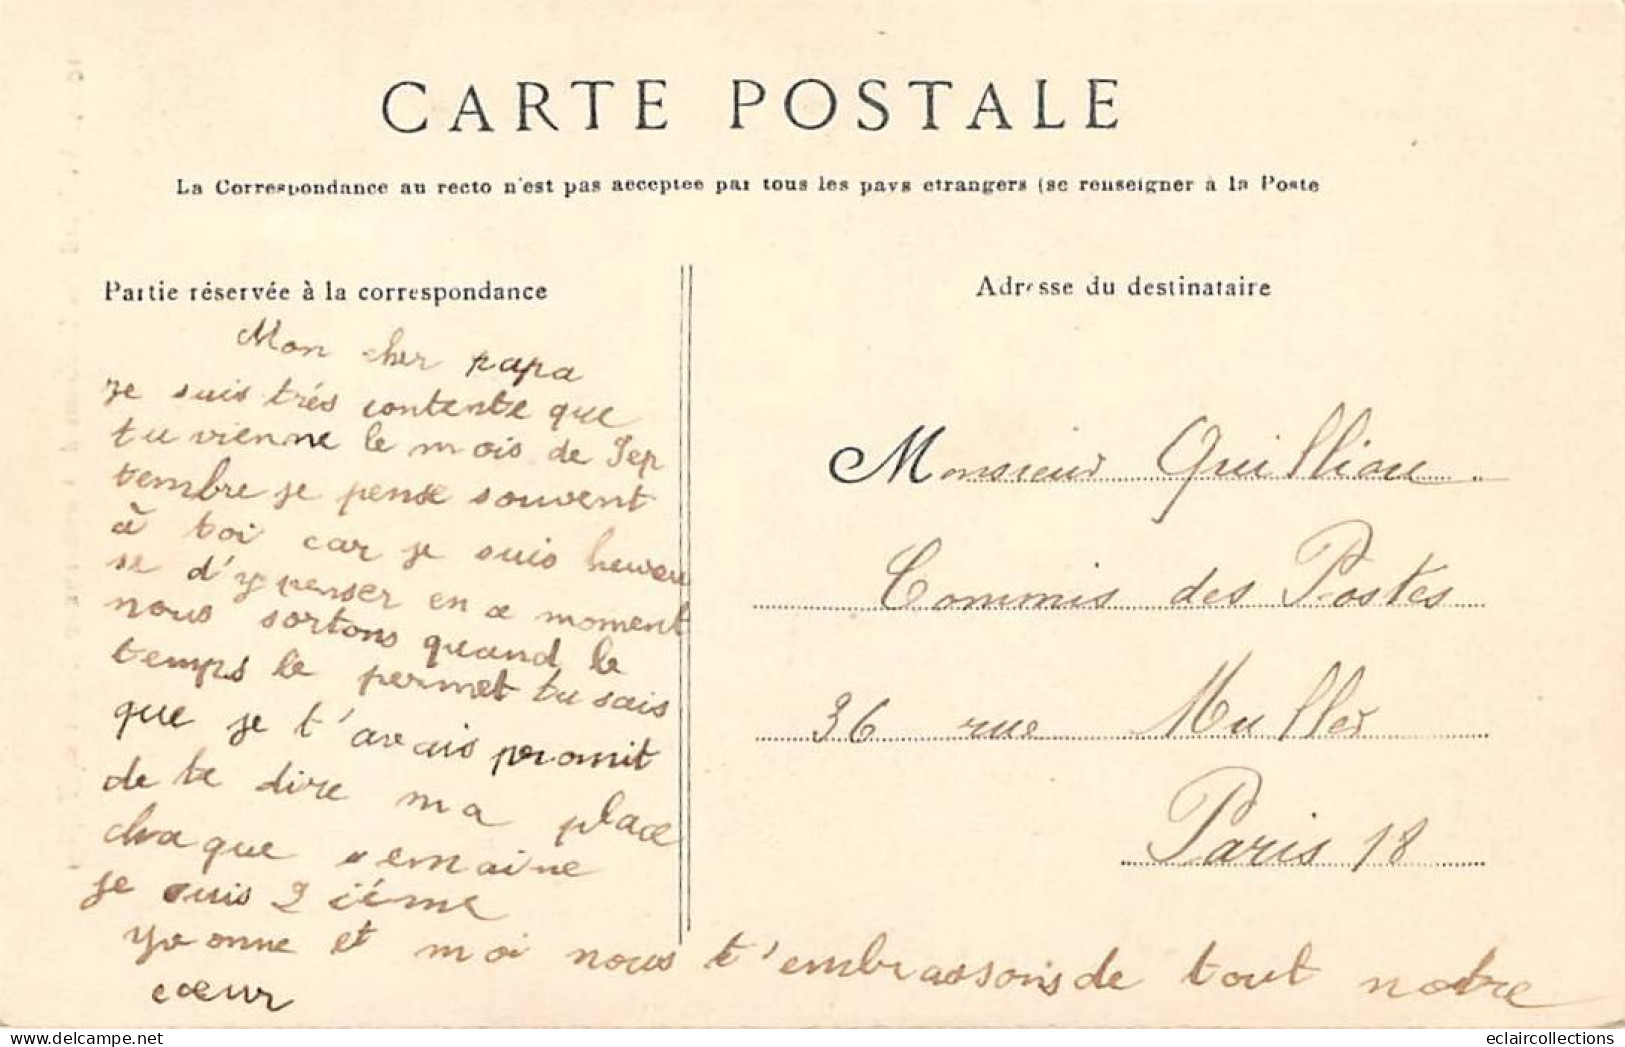 CARTE POSTALE
La Correspondance au recto n'est pas acceptee par tous les pays etrangers (se renseigner à la Poste
Partie réservée à la correspondance
Mon cher papa
je suis trés contente que
tu vienne le mois de Sep
tembre je pense souvent
à toi car je suis heureu
se d'y penser en ce moment
nous sortons quand le
temps le permet tu sais
que je t'avais promit
de te dire ma place
chaque semaine
je suis 2 iéme
Yvonne et moi nous t'embrassons de tout notre
cœur
Adresse du destinataire
Monsieur Quilliou
Commis des Postes
36 rue Muller
Paris 18
eclaircollections